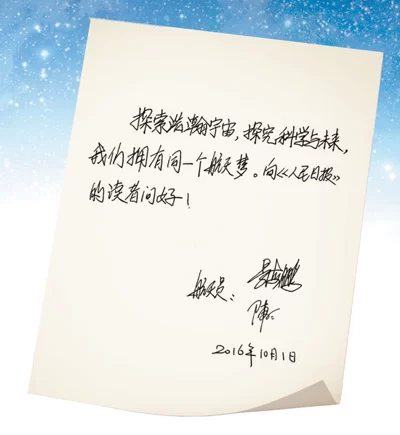 探索浩瀚宇宙，探究科学与未来，
我们拥有同一个航天梦。向《人民日报》
的读者问好！
航天员：景海鹏
陈冬
2016年10月1日